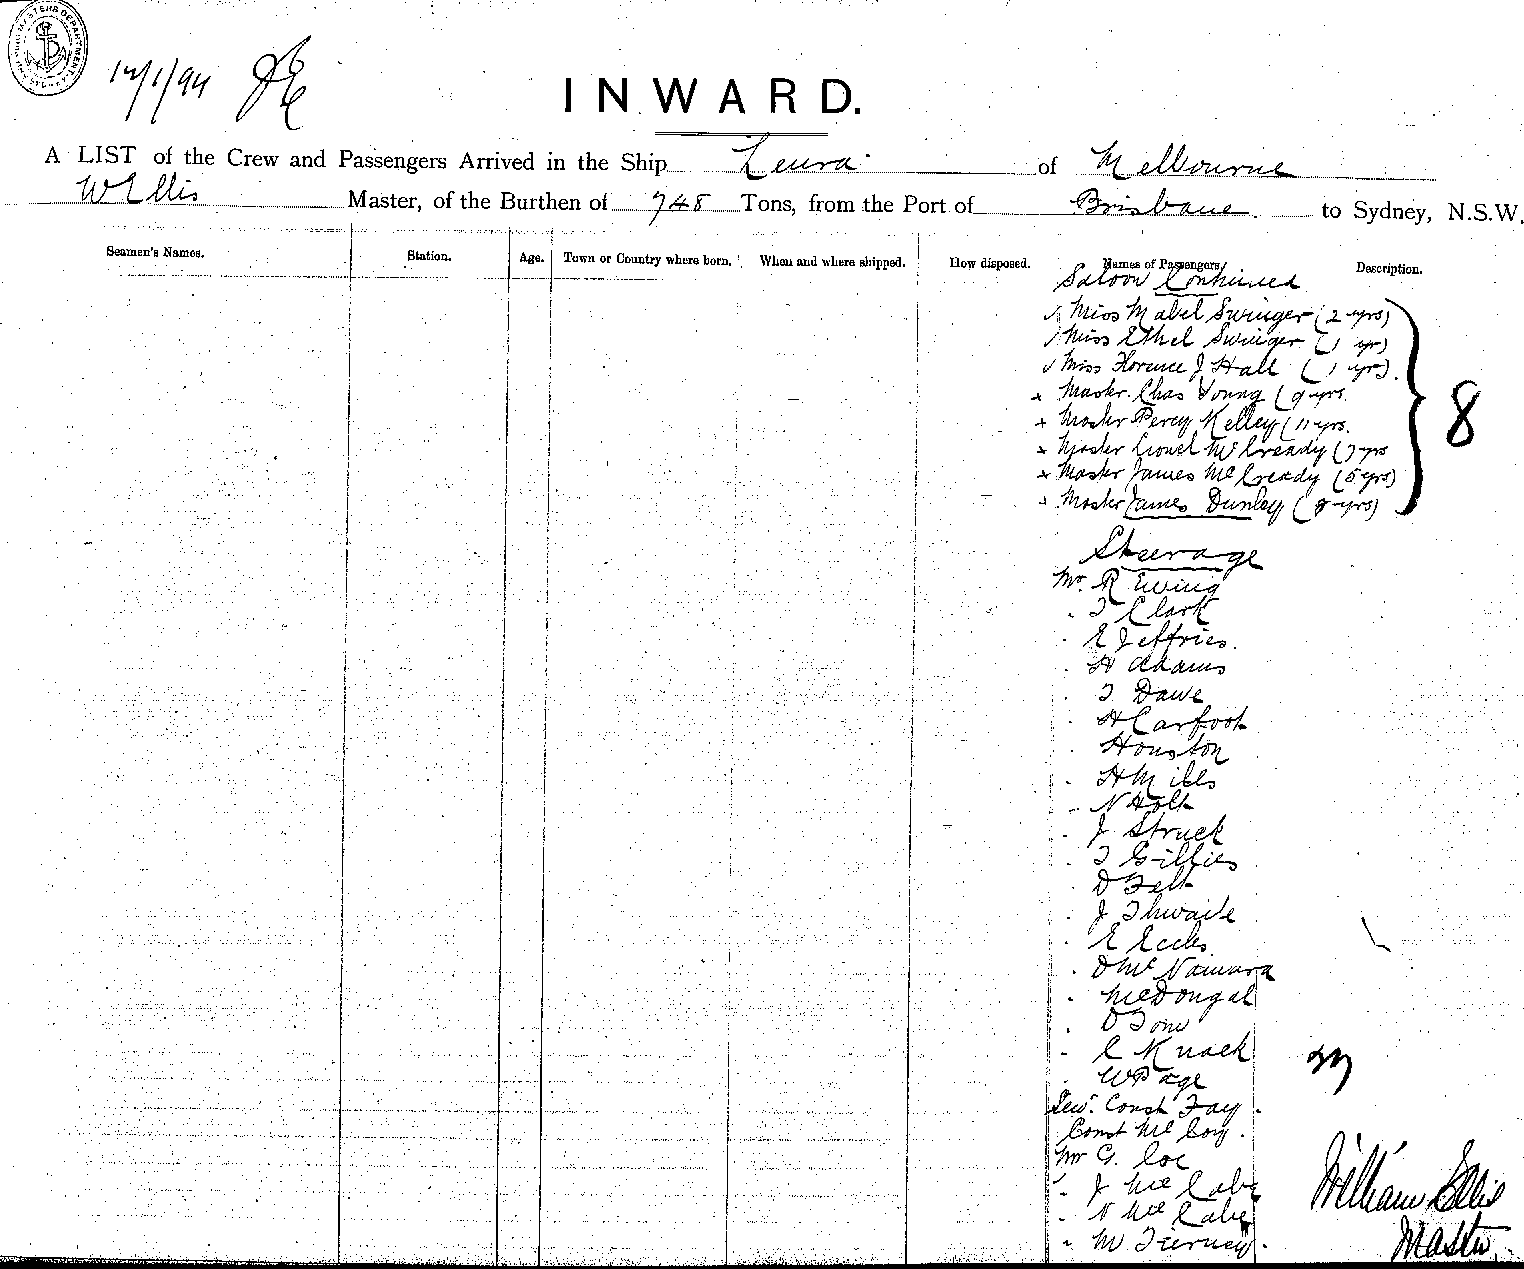 INWARD.
A LIST of the Crew and Passengers Arrived in the Ship Leura of Melbourne
W Ellis Master, of the Burthen of 748 Tons, from the Port of Brisbane to Sydney, N.S.W.
Seamen's Names. Station. Age. Town or Country where born. When and where shipped. How disposed. Names of Passengers. Description.
Saloon Continued
Miss Mabel Swinger (2 yrs)
Miss Ethel Swinger (1 yr)
Miss Florence J Hall (1 yrs)
Master Chas Young (9 yrs.
Master Percy Kelley (11 yrs.
Master Lionel McCready (7 yrs
Master James McCready (5 yrs)
Master James Dunley (8 yrs)
8
Steerage
Mr. R Ewing
T Clark
E Jeffries.
H Adams
T Dawe
H Carfoot
Houston
H Mills
N Holt
J Struck
T Gillies
D Felt
J Thwaite
E Eccles
D McNamara
McDougal
D Tow
C Knack
W Page
Const Fay
Const McCoy
Mr G. Coe
J McCabe
N McCabe
M Tierney
William Ellis
Master